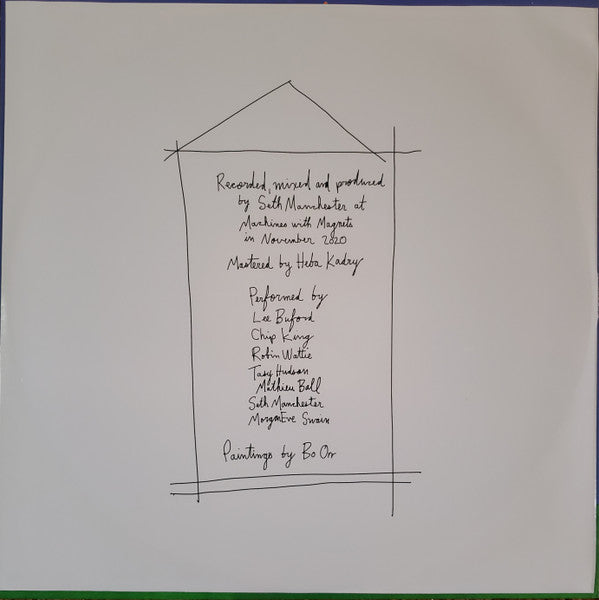 Recorded, mixed and produced
by Seth Manchester at
Machines with Magnets
in November 2020
Mastered by Heba Kadry
Performed by
Lee Buford
Chip King
Robin Wattie
Tasy Hudson
Mathieu Ball
Seth Manchester
MorganEve Swain
Paintings by Bo Orr